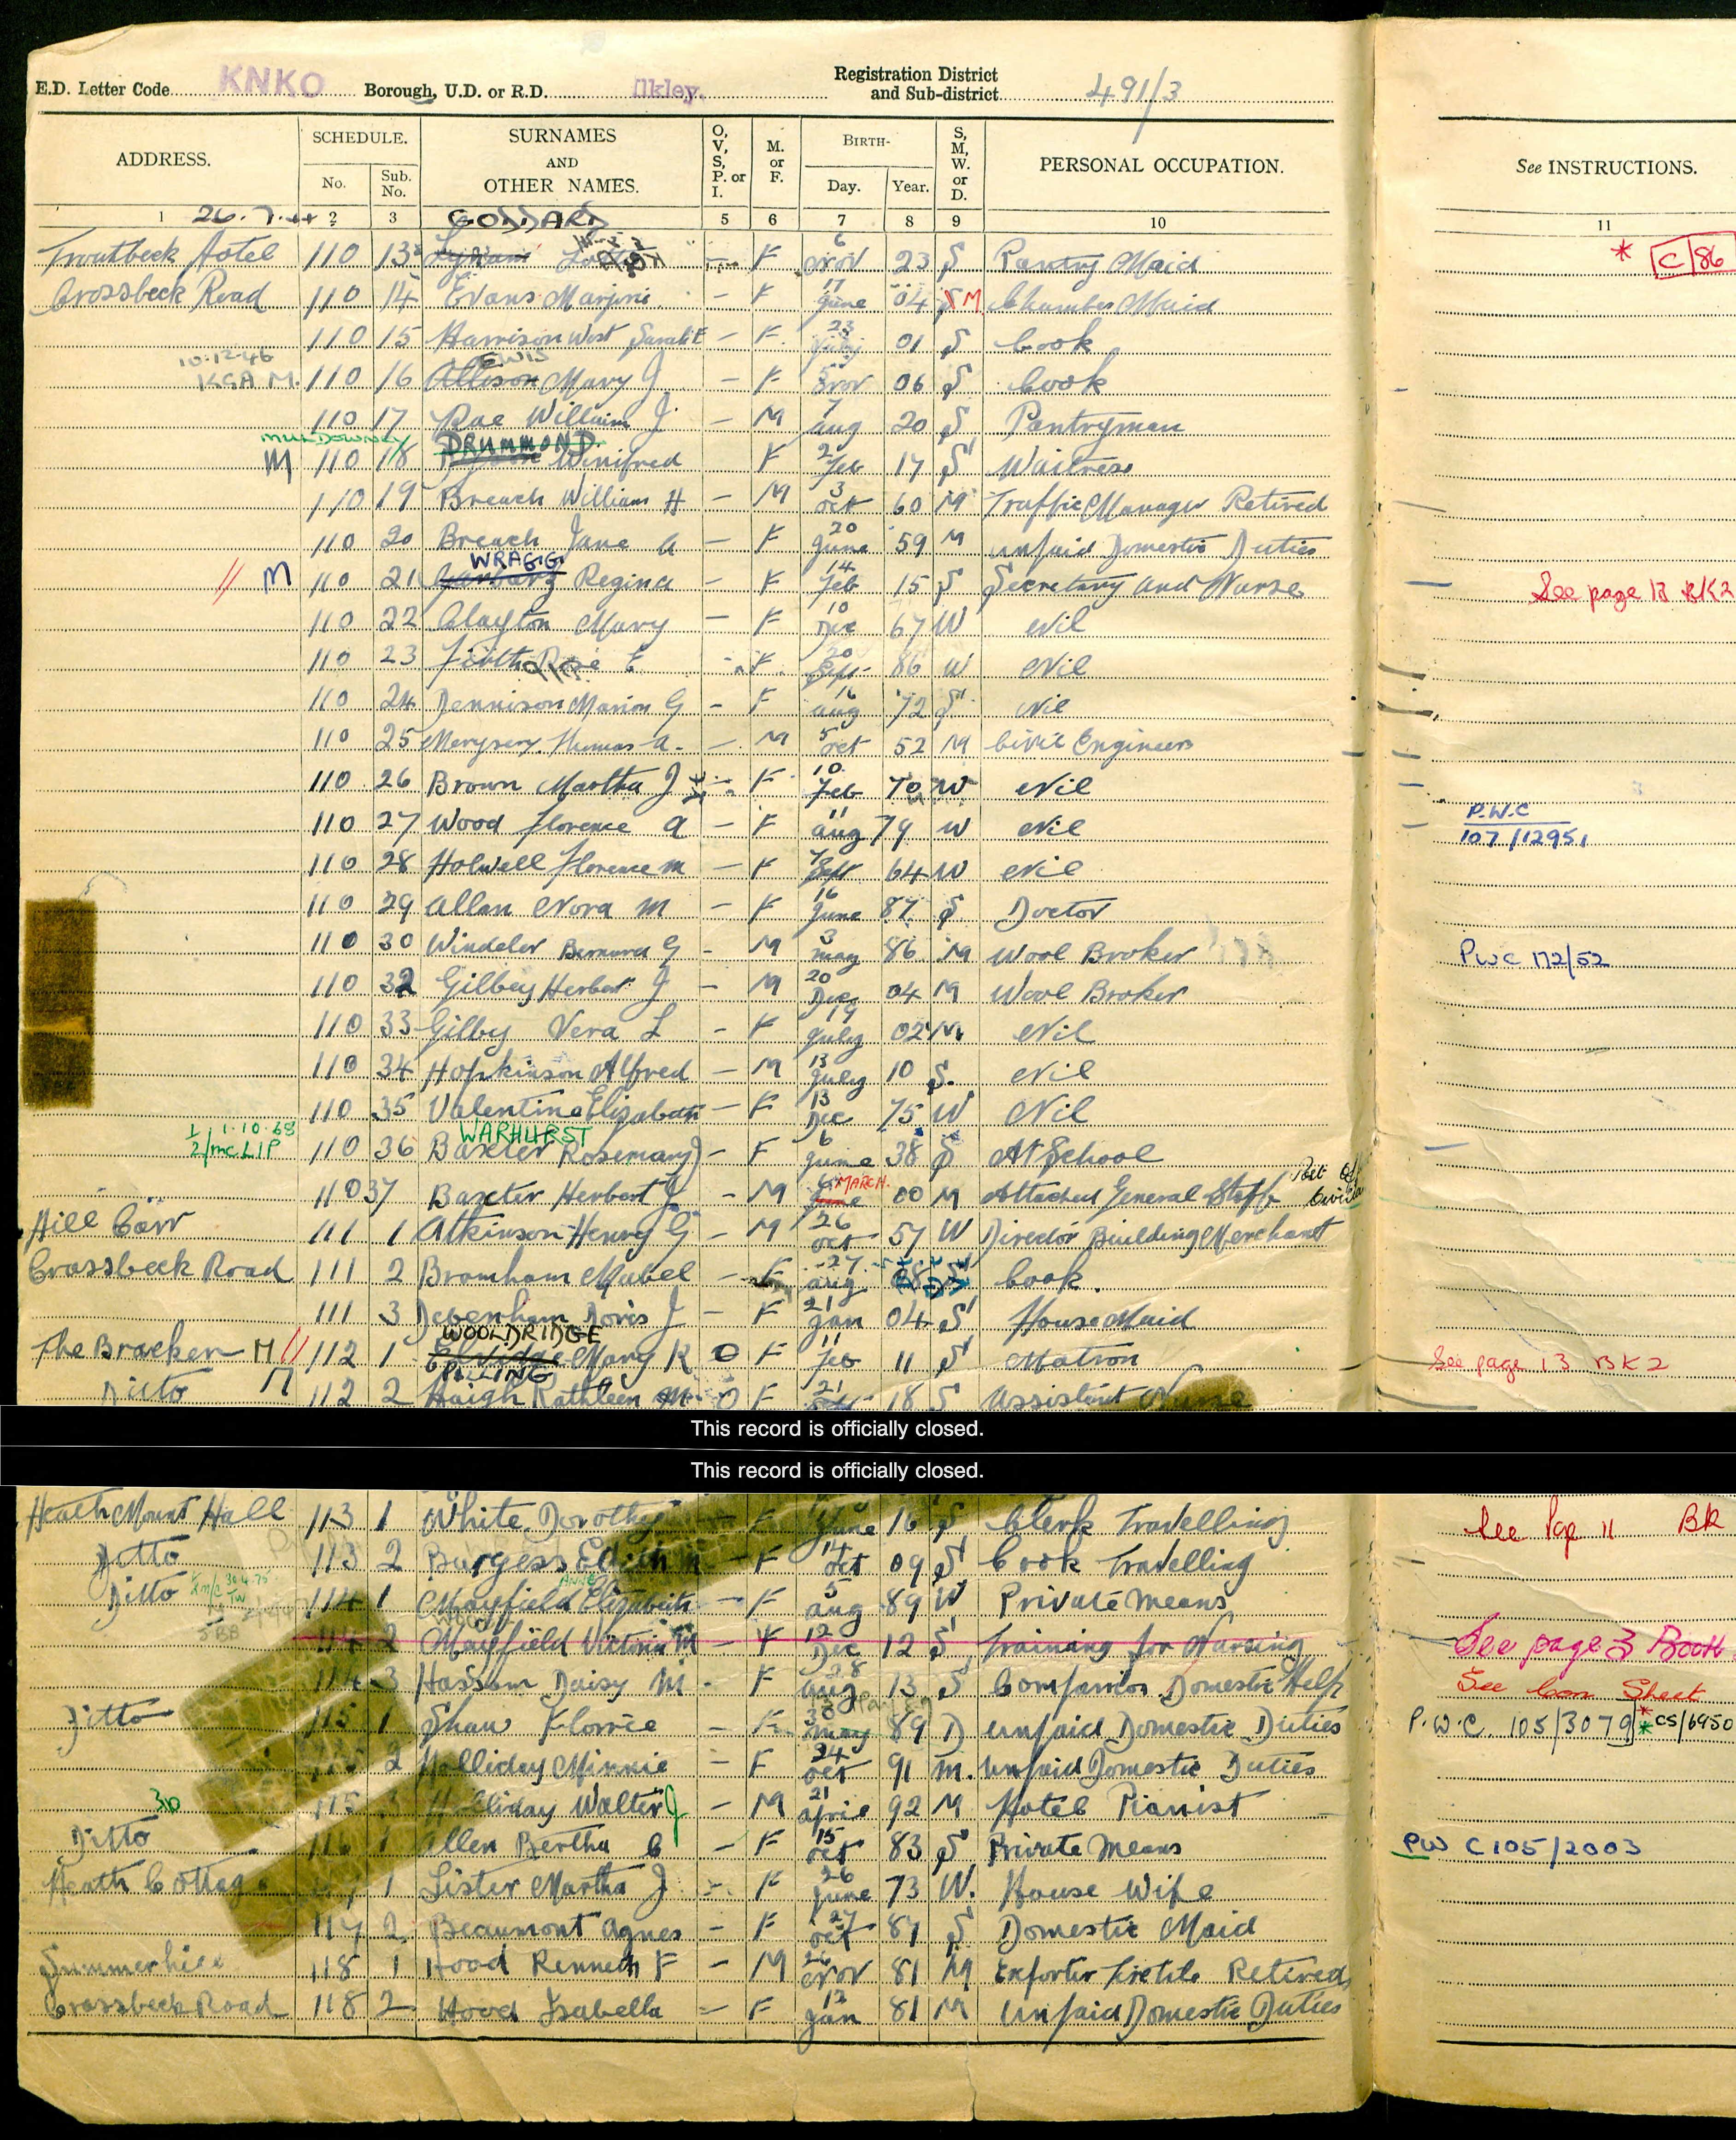 E.D. Letter Code KNKO Borough, U.D. or R.D. Ilkley. Registration District and Sub-district 491/3
ADDRESS. SCHEDULE. No. Sub. No. SURNAMES AND OTHER NAMES. O, V, S, P. or I. M. or F. BIRTH- Day. Year. S, M, W. or D. PERSONAL OCCUPATION. See INSTRUCTIONS.
1 26.7.44 2 3 GODDARD 5 6 7 8 9 10 11
Troutbeck Hotel 110 13 — F 6 Nov 23 S Pantry Maid * C/86
Crossbeck Road 110 14 Evans Marjorie – F 17 June 04 S M Chamber Maid
110 15 Harrison West Sarah E – F 23 July 01 S Cook
10.12.46 LEWIS
KGA M. 110 16 Allison Mary J – F 5 Nov 06 S Cook
110 17 Rae William J. – M 7 Aug 20 S Pantryman
MULDOWNEY DRUMMOND
M 110 18 Winifred F Feb 17 S Waitress
110 19 Breach William H – M 3 Oct 60 M Traffic Manager Retired
110 20 Breach Jane A – F 20 June 59 M Unpaid Domestic Duties
WRAGG
// M 110 21 Regina – F 14 Feb 15 S Secretary and Nurse See page 13 BK2
110 22 Clayton Mary – F 10 Dec 67 W Nil
110 23 Firth Rose E. F 20 Sept 86 W Nil
110 24 Dennison Marion G – F 16 Aug 72 S Nil
110 25 Thomas A. – M 5 Oct 52 M Civil Engineer
110 26 Brown Martha J – F 10 Feb 70 W Nil
110 27 Wood Florence A – F 11 Aug 79 W Nil P.W.C 107/12951
110 28 Holwell Florence M – F 7 Sept 64 W Nil
110 29 Allan Nora M – F 16 June 87 S Doctor
110 30 Windeler Bernard G – M 3 May 86 M Wool Broker PWC 172/52
110 32 Gilbey Herbert J – M 20 Dec 04 M Wool Broker
110 33 Gilby Vera L – F 19 July 02 M Nil
110 34 Hopkinson Alfred – M 13 July 10 S. Nil
110 35 Valentine Elizabeth – F 13 Dec 75 W Nil
1.10.68 WARHURST
2/mc LIP 110 36 Baxter Rosemary J – F 6 June 38 S At School
110 37 Baxter Herbert J – M 6 June MARCH. 00 M Attached General Staff
Hill Carr 111 1 Atkinson Henry G – M 26 Oct 57 W Director Building Merchant
Crossbeck Road 111 2 Bramham Mabel – F 27 Aug S Cook
111 3 Debenham Doris J – F 21 Jan 04 S House Maid
WOOLDRIDGE
The Bracken M // 112 1 Mary K O F 11 Feb 11 S Matron See page 13 BK2
PILLING
Ditto M 112 2 Haigh Kathleen M O F 21 18 S Assistant Nurse
This record is officially closed.
This record is officially closed.
Heath Mount Hall 113 1 White Dorothy – F June 16 S Clerk Travelling See Page 11 BK
Ditto 113 2 Burgess Edith M – F 14 Oct 09 S Cook Travelling
ANNE
Ditto 114 1 Mayfield Elizabeth – F 5 Aug 89 W Private Means
114 2 Mayfield Victoria M – F 12 Dec 12 S Training for Nursing See page 3 Book
114 3 Hassam Daisy M. F 28 Aug 13 S Companion Domestic Help See Con Sheet
Ditto 115 1 Shaw Florrie – F 30 May 89 D Unpaid Domestic Duties P.W.C. 105/3079 * * CS/6950
115 2 Holliday Minnie – F 24 Oct 91 M. Unpaid Domestic Duties
115 3 Holliday Walter J – M 21 April 92 M Hotel Pianist
Ditto 116 1 Allen Bertha C – F 15 Oct 83 S Private Means PW C 105/2003
Heath Cottage 117 1 Lister Martha J – F 26 June 73 W. House Wife
117 2 Beaumont Agnes – F 27 Oct 87 S Domestic Maid
Summerhill 118 1 Hood Kenneth F – M 26 Nov 81 M Exporter Textile Retired
Crossbeck Road 118 2 Hood Isabella – F 12 Jan 81 M Unpaid Domestic Duties